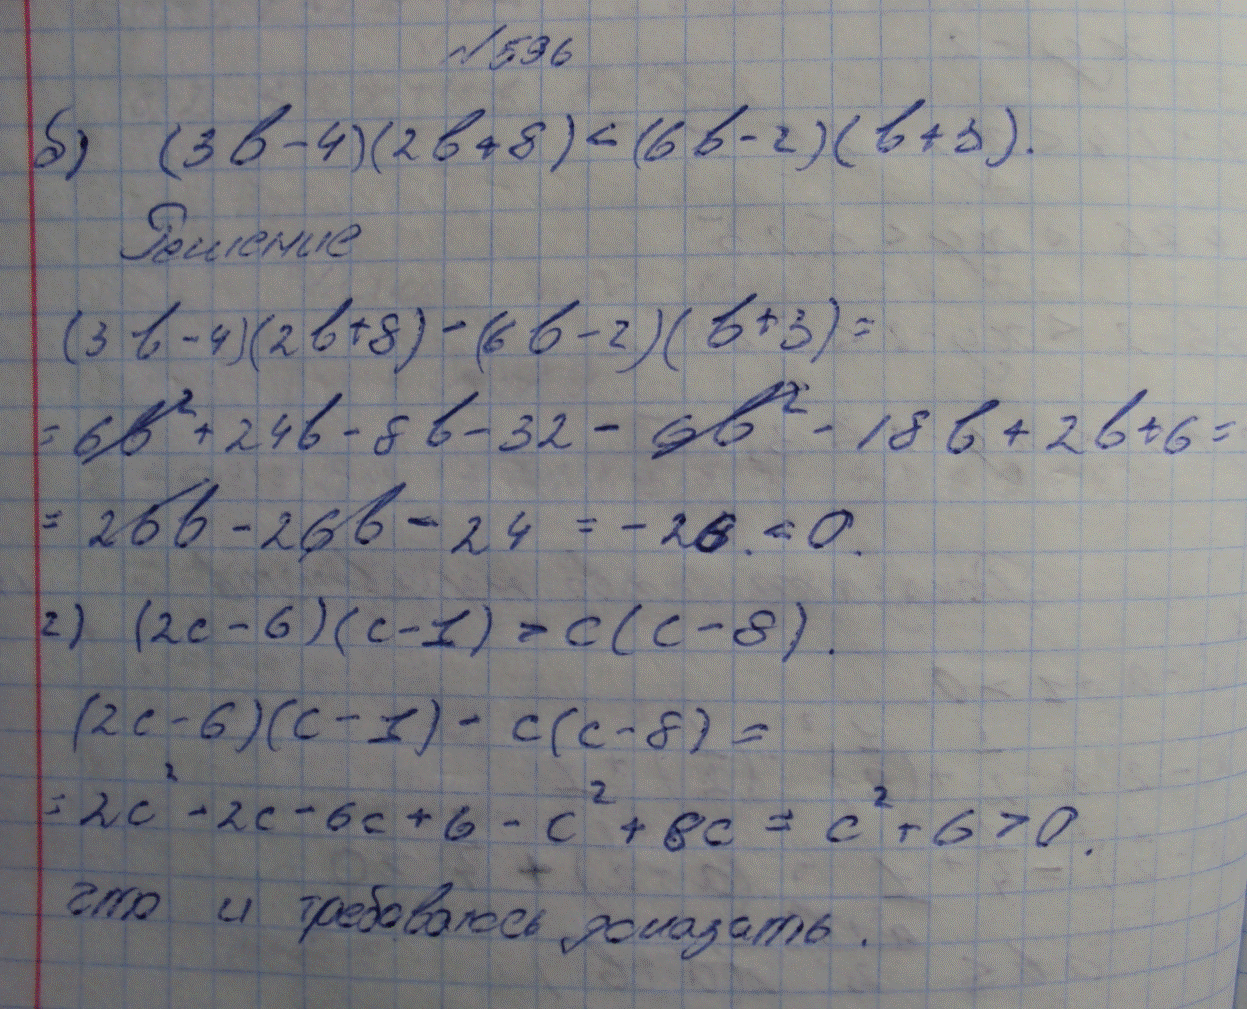 №596
б) (3b-4)(2b+8)<(6b-2)(b+3).
Решение
(3b-4)(2b+8)-(6b-2)(b+3)=
=6b²+24b-8b-32-6b²-18b+2b+6=
=26b-26b-24=-26.<0.
г) (2c-6)(c-1)>c(c-8).
(2c-6)(c-1)-c(c-8)=
=2c²-2c-6c+6-c²+8c=c²+6>0.
что и требовалось доказать.